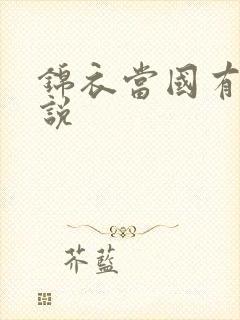 錦衣當國有
說
芥藍